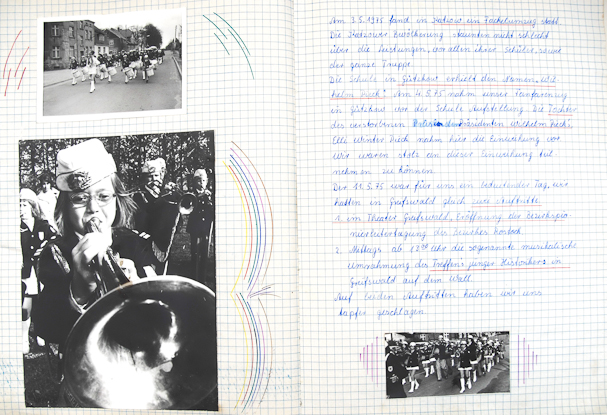 Am 3.5.1975 fand in Katzow ein Fackelumzug statt.
Die Katzower Bevölkerung staunten nicht schlecht
über die Leistungen, vor allem ihrer Schüler, sowie
der ganze Truppe.
Die Schule in Gützkow erhielt den Namen „Wil-
helm Pieck". Am 4.5.75 nahm unser Fanfarenzug
in Gützkow vor der Schule Aufstellung. Die Tochter
des verstorbenen Präsidenten Wilhelm Pieck:
Elli Winter Pieck nahm hier die Einweihung vor.
Wir waren stolz an dieser Einweihung teil
nehmen zu können.
Der 11.5.75 war für uns ein bedeutender Tag, wir
hatten in Greifswald gleich zwei Auftritte.
1. im Theater Greifswald, Eröffnung der Bezirkspio-
nierleitertagung des Bezirkes Rostock.
2. Mittags ab 12 00 Uhr die sogenannte musikalische
Umrahmung des Treffen's junger Historiker in
Greifswald auf dem Wall.
Auf beiden Auftritten haben wir uns
tapfer geschlagen.